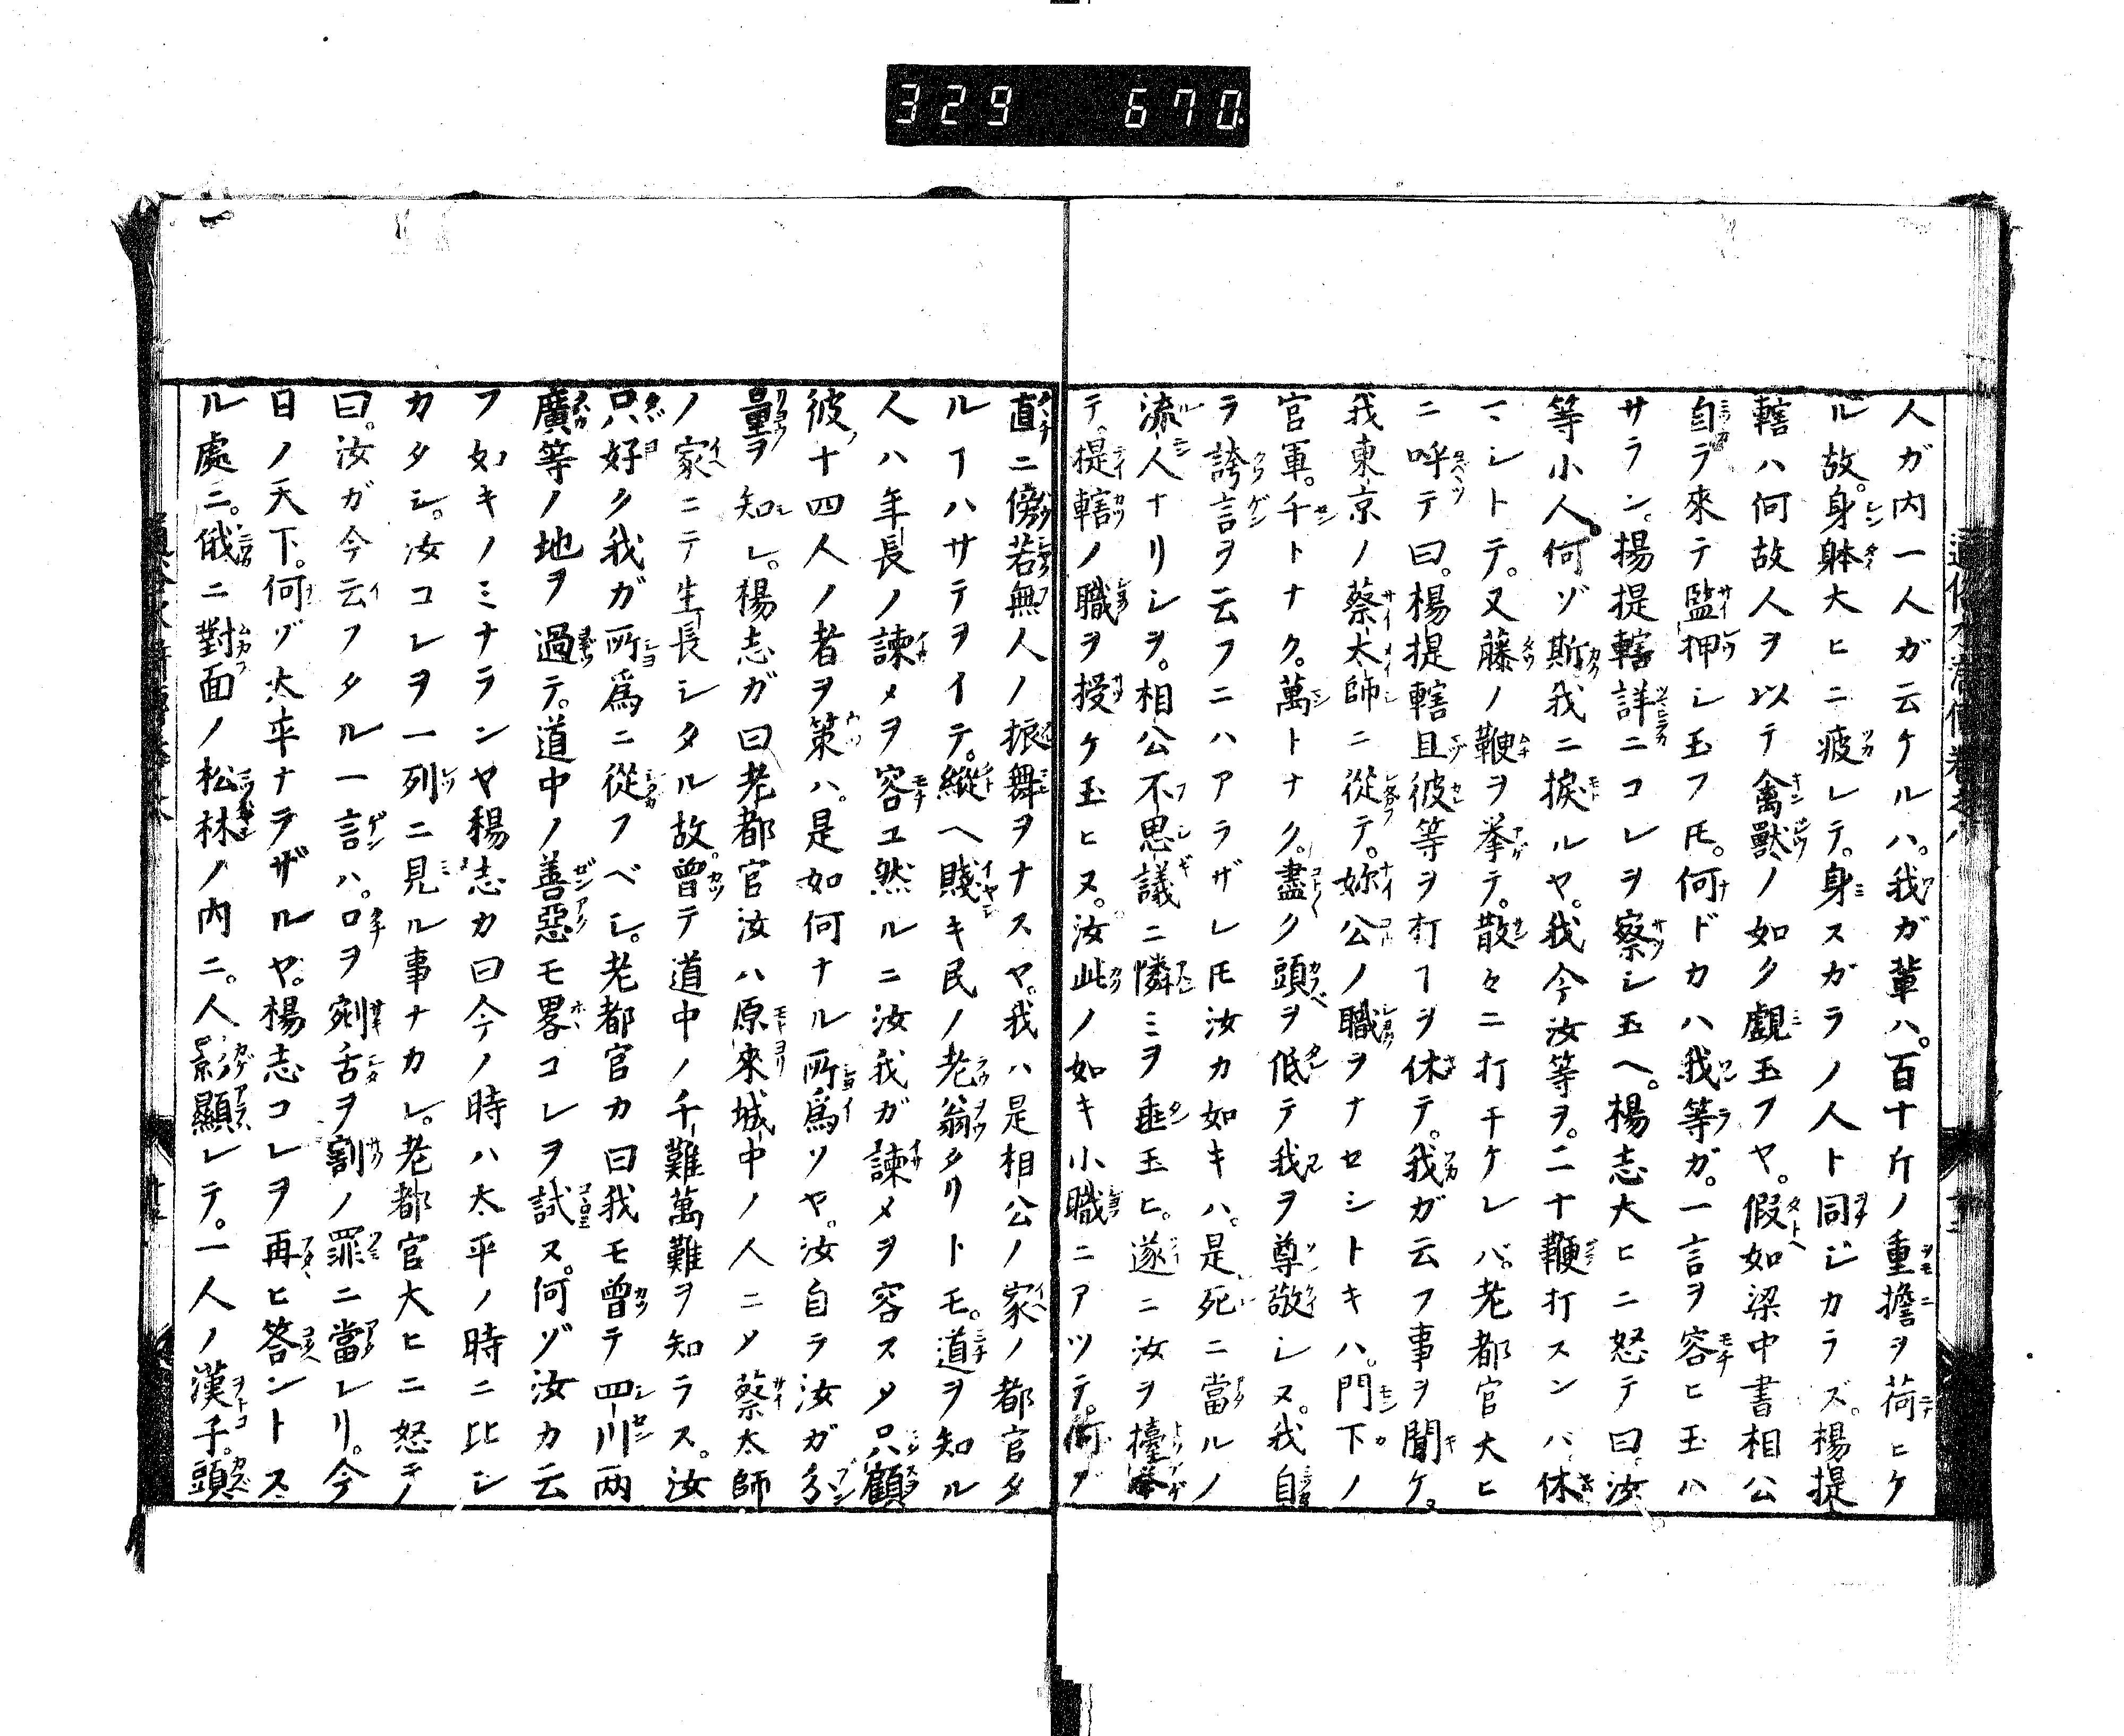 329 670
人ガ内一人ガ云ケルハ。我ガ輩ハ。百十斤ノ重擔ヲ荷ヒケ
ル故。身躰大ヒニ疲レテ。身スガラノ人ト同ジカラズ。楊提
轄ハ何故人ヲ以テ禽獸ノ如ク覷玉フヤ。假如梁中書相公
自ラ來テ監押シ玉フ𪜈。何ドカハ我等ガ。一言ヲ容ヒ玉ハ
サラン。楊提轄詳ニコレヲ察シ玉ヘ。楊志大ヒニ怒テ曰。汝
等小人何ゾ斯我ニ捩ルヤ。我今汝等ヲ。二十鞭打スンハ。休
マシトテ。又藤ノ鞭ヲ挙テ。散々ニ打チケレバ。老都官大ヒ
ニ呼テ曰。楊提轄且彼等ヲ打ヿヲ休テ。我ガ云フ事ヲ聞ケ。
我東京ノ蔡太師ニ從テ。妳公ノ職ヲナセシトキハ。門下ノ
官軍。千トナク。萬トナク。盡ク頭ヲ低テ我ヲ尊敬シヌ。我自
ラ誇言ヲ云フニハアラザレ𪜈汝カ如キハ。是死ニ當ルノ
流人ナリシヲ。相公不思議ニ憐ミヲ垂玉ヒ。遂ニ汝ヲ擡擧
テ。提轄ノ職ヲ授ケ玉ヒヌ。汝此ノ如キ小職ニアツテ。何ゾ
直ニ傍若無人ノ振舞ヲナスヤ。我ハ是相公ノ家ノ都官タ
ルヿハサテヲイテ。縱ヘ賤キ民ノ老翁タリトモ。道ヲ知ル
人ハ年長ノ諫メヲ容ユ然ルニ汝我ガ諫メヲ容スタ只顧
彼十四人ノ者ヲ策ハ。是如何ナル所爲ソヤ。汝自ラ汝ガ分
量ヲ知レ。楊志ガ曰老都官汝ハ原來城中ノ人ニメ蔡太師
ノ家ニテ生長シタル故。曾テ道中ノ千難萬難ヲ知ラス。汝
只好ク我ガ所爲ニ從フベシ。老都官カ曰我モ曾テ四川両
廣等ノ地ヲ過テ。道中ノ善惡モ畧コレヲ試ヌ。何ゾ汝カ云
フ如キノミナランヤ楊志カ曰今ノ時ハ太平ノ時ニ比シ
カタシ。汝コレヲ一列ニ見ル事ナカレ。老都官大ヒニ怒テ
曰。汝ガ今云フタル一言ハ。口ヲ剜舌ヲ割ノ罪ニ當レリ。今
日ノ天下。何ゾ太平ナラザルヤ。楊志コレヲ再ヒ答ントス
ル處ニ。俄ニ對面ノ松林ノ内ニ。人影顯レテ。一人ノ漢子。頭